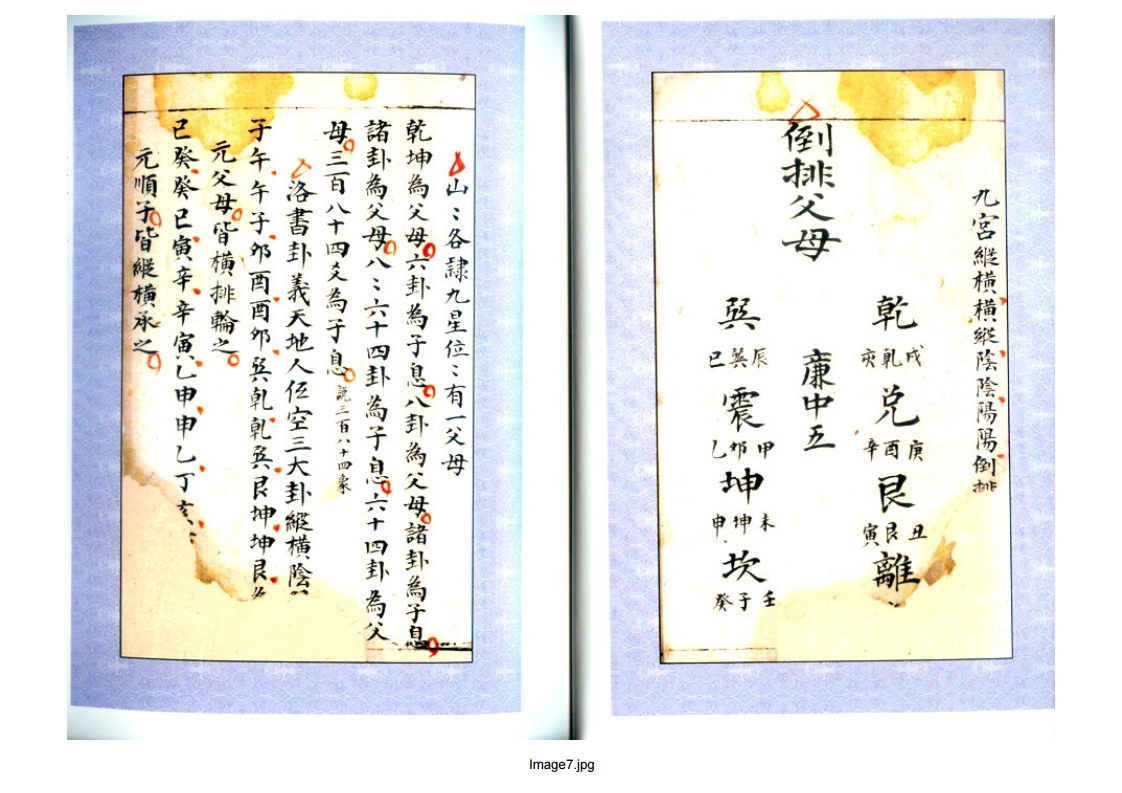 九宮縱橫橫縱陰陰陽陽倒排
倒排父母
乾
戌乾亥
兌
庚酉辛
艮
丑艮寅
離
廉中五
巽
辰巽巳
震
甲卯乙
坤
未坤申
坎
壬子癸
山〻各隸九星位〻有一父母
乾坤為父母六卦為子息八卦為父母諸卦為子息
諸卦為父母八〻六十四卦為子息六十四卦為父
母三百八十四爻為子息說三百八十四象
洛書卦義天地人伍空三大卦縱橫陰
子午午子卯酉酉卯巽乾乾巽艮坤坤艮
元父母皆橫排輪之
巳癸癸巳寅辛辛寅乙申申乙丁亥
元順子皆縱橫承之
Image7.jpg